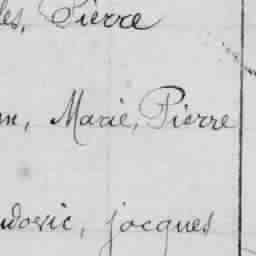 les, Pierre
m, Marie, Pierre
udovic, jacques